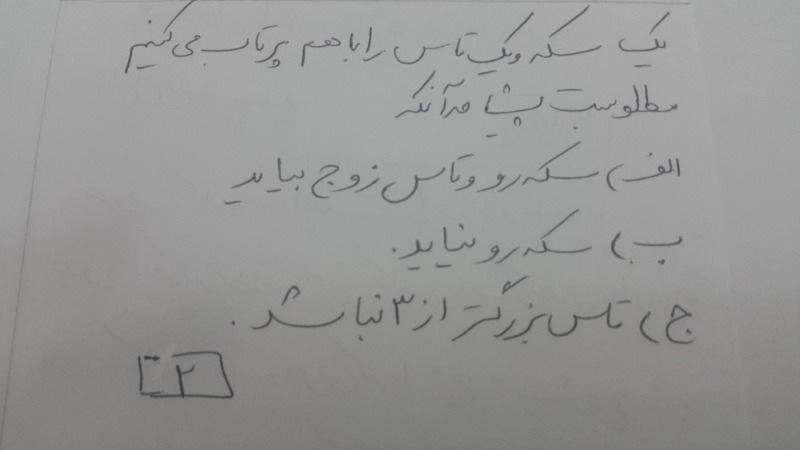 یک سکه و یک تاس را با هم پرتاب می کنیم
مطلوبست پیشامد آنکه
الف) سکه رو و تاس زوج بیاید
ب) سکه رو نیاید.
ج) تاس بزرگتر از ۳ نباشد.
۲